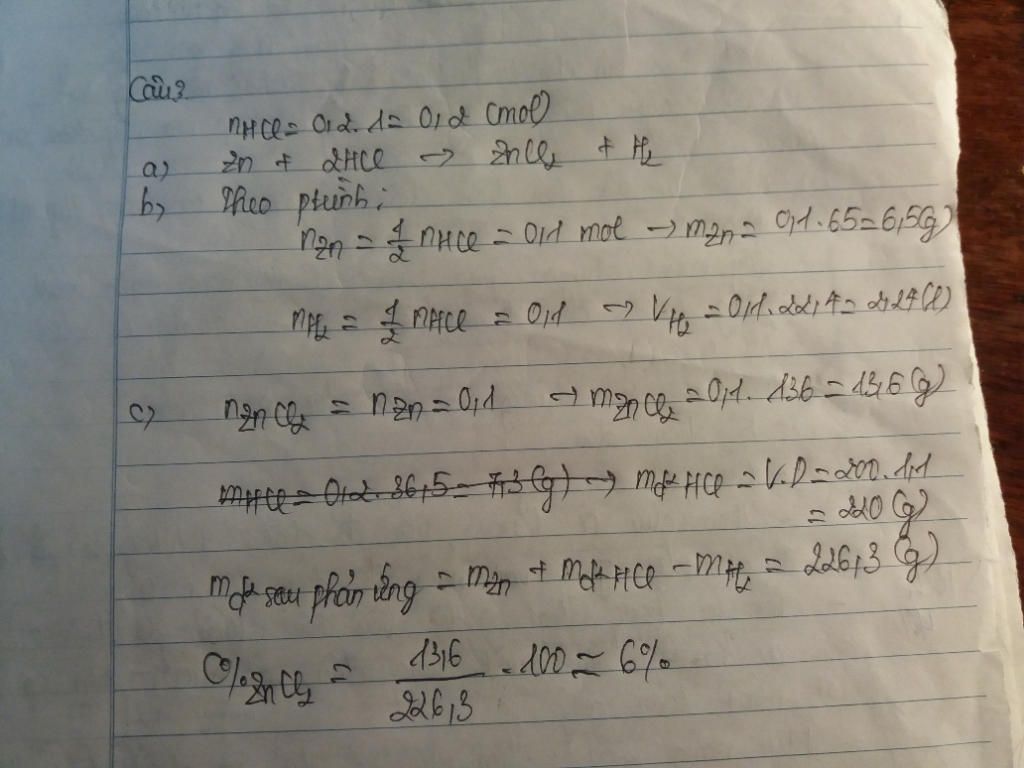 Câu 3.
nHCl = 0,2. 1 = 0,2 (mol)
a) Zn + 2HCl → ZnCl₂ + H₂
b) Theo ptình:
nZn = 1/2 nHCl = 0,1 mol → mZn = 0,1. 65 = 6,5(g)
nH₂ = 1/2 nHCl = 0,1 → VH₂ = 0,1. 22,4 = 2,24(l)
c) nZnCl₂ = nZn = 0,1 → mZnCl₂ = 0,1. 136 = 13,6 (g)
mHCl = 0,2. 36,5 = 7,3 (g) → md² HCl = V.D = 200. 1,1
= 220 (g)
md² sau phản ứng = mZn + md² HCl - mH₂ = 226,3 (g)
C%ZnCl₂ = 13,6/226,3 . 100 ≈ 6%